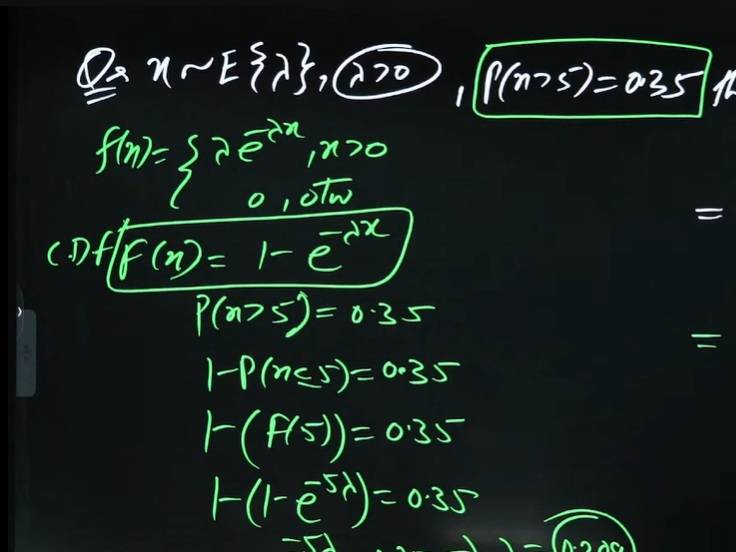 Q. x ~ E{λ}, λ>0, P(x>5)=0.35
f(x)= { λe^{-λx}, x>0
0, otw
CDf F(x) = 1 - e^{-λx}
=
P(x>5) = 0.35
=
1-P(x≤5)=0.35
1-(F(5))=0.35
1-(1-e^{-5λ})=0.35